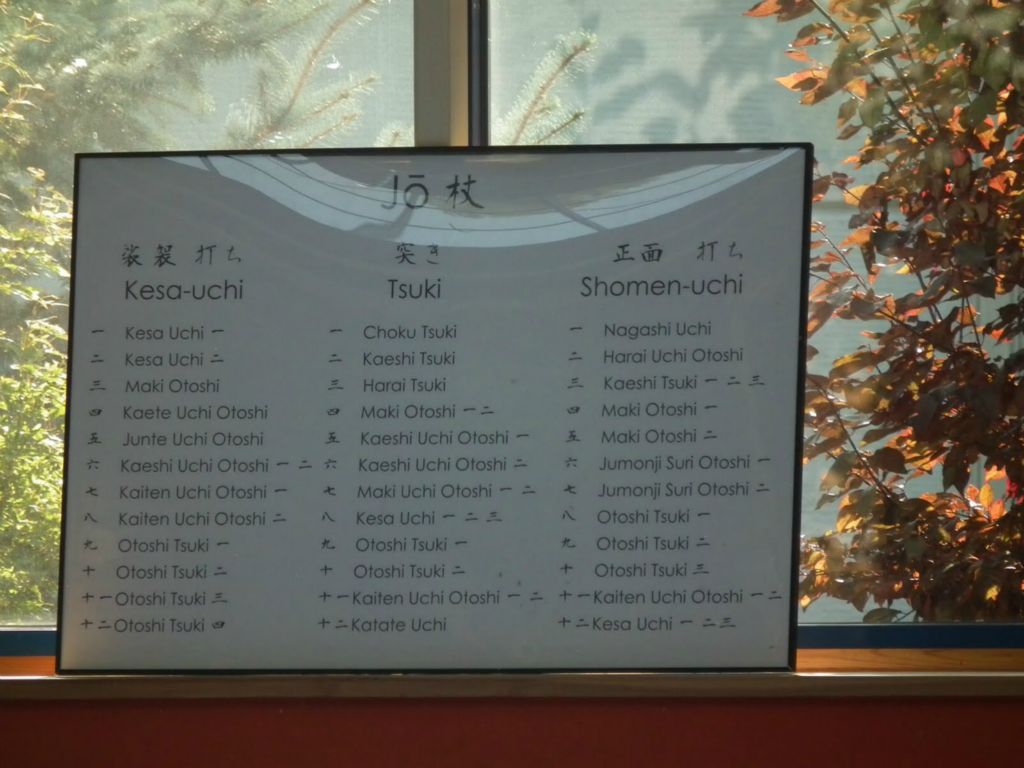 Jō 杖
袈裟 打ち
Kesa-uchi
一 Kesa Uchi 一
二 Kesa Uchi 二
三 Maki Otoshi
四 Kaete Uchi Otoshi
五 Junte Uchi Otoshi
六 Kaeshi Uchi Otoshi 一 二
七 Kaiten Uchi Otoshi 一
八 Kaiten Uchi Otoshi 二
九 Otoshi Tsuki 一
十 Otoshi Tsuki 二
十一 Otoshi Tsuki 三
十二 Otoshi Tsuki 四
突き
Tsuki
一 Choku Tsuki
二 Kaeshi Tsuki
三 Harai Tsuki
四 Maki Otoshi 一 二
五 Kaeshi Uchi Otoshi 一
六 Kaeshi Uchi Otoshi 二
七 Maki Uchi Otoshi 一 二
八 Kesa Uchi 一 二 三
九 Otoshi Tsuki 一
十 Otoshi Tsuki 二
十一 Kaiten Uchi Otoshi 一 二
十二 Katate Uchi
正面 打ち
Shomen-uchi
一 Nagashi Uchi
二 Harai Uchi Otoshi
三 Kaeshi Tsuki 一 二 三
四 Maki Otoshi 一
五 Maki Otoshi 二
六 Jumonji Suri Otoshi 一
七 Jumonji Suri Otoshi 二
八 Otoshi Tsuki 一
九 Otoshi Tsuki 二
十 Otoshi Tsuki 三
十一 Kaiten Uchi Otoshi 一 二
十二 Kesa Uchi 一 二 三